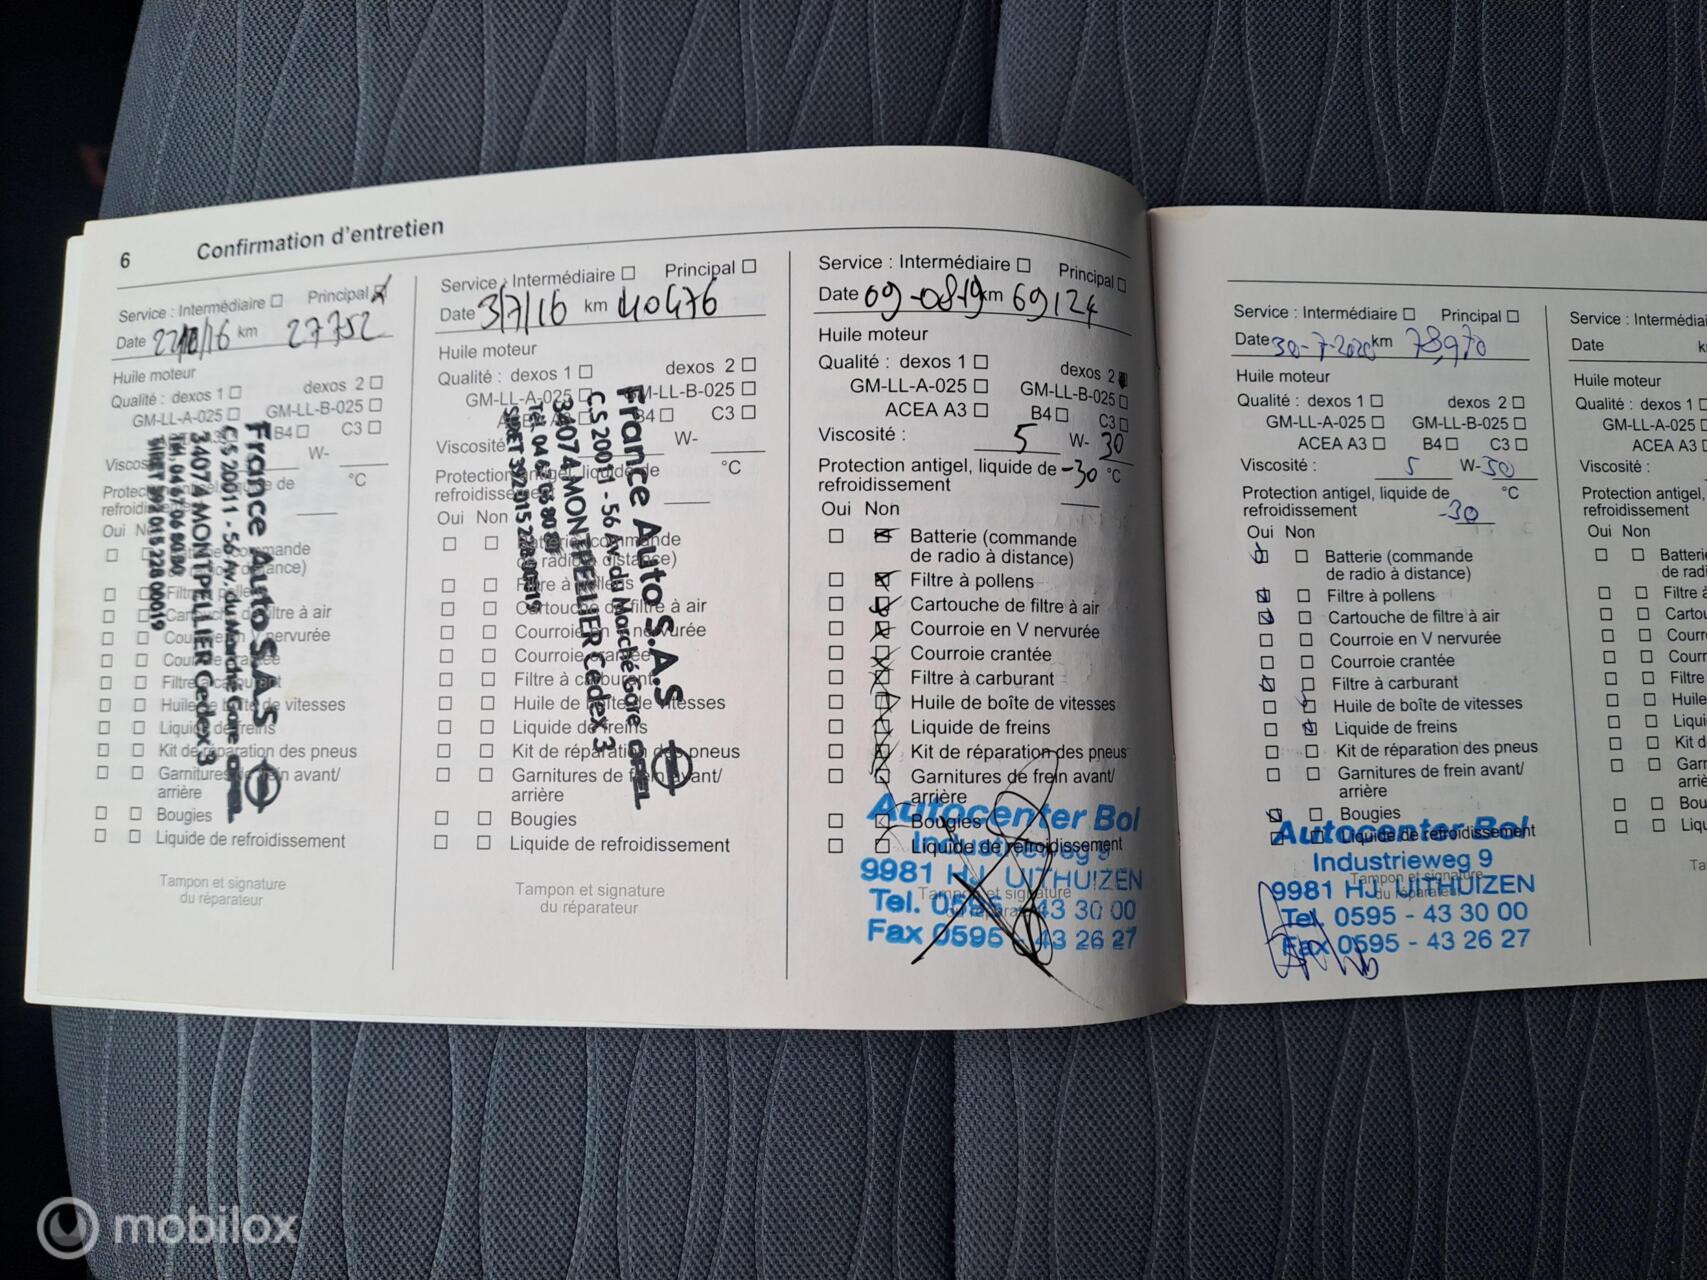 6 Confirmation d'entretien
Service : Intermédiaire ☐ Principal ☒
Date km 27752
Huile moteur
Qualité : dexos 1 ☐ dexos 2 ☐
GM-LL-A-025 ☐ GM-LL-B-025 ☐
B4 ☐ C3 ☐
W-
°C
Oui
Filtre à air
nervurée
Huile de boîte de vitesses
Liquide de freins
Kit de réparation des pneus
Garnitures de frein avant/
arrière
Bougies
Liquide de refroidissement
Tampon et signature
du réparateur
France Auto S.A.S
CS 20011 - 56 Av. du Marché Gare OPEL
34074 MONTPELLIER Cedex 3
Service : Intermédiaire ☐ Principal ☐
Date 3/7/16 km 40476
Huile moteur
Qualité : dexos 1 ☐ dexos 2 ☐
GM-LL-A-025 ☐ GM-LL-B-025 ☐
B4 ☐ C3 ☐
Viscosité W-
Protection antigel, liquide de °C
refroidissement
Oui Non
Batterie (commande
de radio à distance)
Filtre à pollens
Cartouche de filtre à air
Courroie en V nervurée
Courroie crantée
Filtre à carburant
Huile de boîte de vitesses
Liquide de freins
Kit de réparation des pneus
Garnitures de frein avant/
arrière
Bougies
Liquide de refroidissement
Tampon et signature
du réparateur
France Auto S.A.S
C.S 20011 - 56 Av. du Marché Gare OPEL
34074 MONTPELLIER Cedex 3
Service : Intermédiaire ☐ Principal ☐
Date 09-08-19 km 69124
Huile moteur
Qualité : dexos 1 ☐ dexos 2
GM-LL-A-025 ☐ GM-LL-B-025 ☐
ACEA A3 ☐ B4 ☐ C3 ☐
Viscosité : 5 W-30
Protection antigel, liquide de -30 °C
refroidissement
Oui Non
Batterie (commande
de radio à distance)
Filtre à pollens
Cartouche de filtre à air
Courroie en V nervurée
Courroie crantée
Filtre à carburant
Huile de boîte de vitesses
Liquide de freins
Kit de réparation des pneus
Garnitures de frein avant/
arrière
Bougies
Liquide de refroidissement
Tampon et signature
Autocenter Bol
Industrieweg 9
9981 HJ UITHUIZEN
Tel. 0595 - 43 30 00
Fax 0595 - 43 26 27
Service : Intermédiaire ☐ Principal ☐
Date 30-7-2020 km 78970
Huile moteur
Qualité : dexos 1 ☐ dexos 2 ☐
GM-LL-A-025 ☐ GM-LL-B-025 ☐
ACEA A3 ☐ B4 ☐ C3 ☐
Viscosité : 5 W-30
Protection antigel, liquide de °C
refroidissement -30
Oui Non
Batterie (commande
de radio à distance)
Filtre à pollens
Cartouche de filtre à air
Courroie en V nervurée
Courroie crantée
Filtre à carburant
Huile de boîte de vitesses
Liquide de freins
Kit de réparation des pneus
Garnitures de frein avant/
arrière
Bougies
Liquide de refroidissement
Tampon et signature
du réparateur
Autocenter Bol
Industrieweg 9
9981 HJ UITHUIZEN
Tel. 0595 - 43 30 00
Fax 0595 - 43 26 27
Service : Intermédiai
Date
Huile moteur
Qualité : dexos 1
GM-LL-A-025
ACEA A3
Viscosité :
Protection antigel,
refroidissement
Oui Non
mobilox